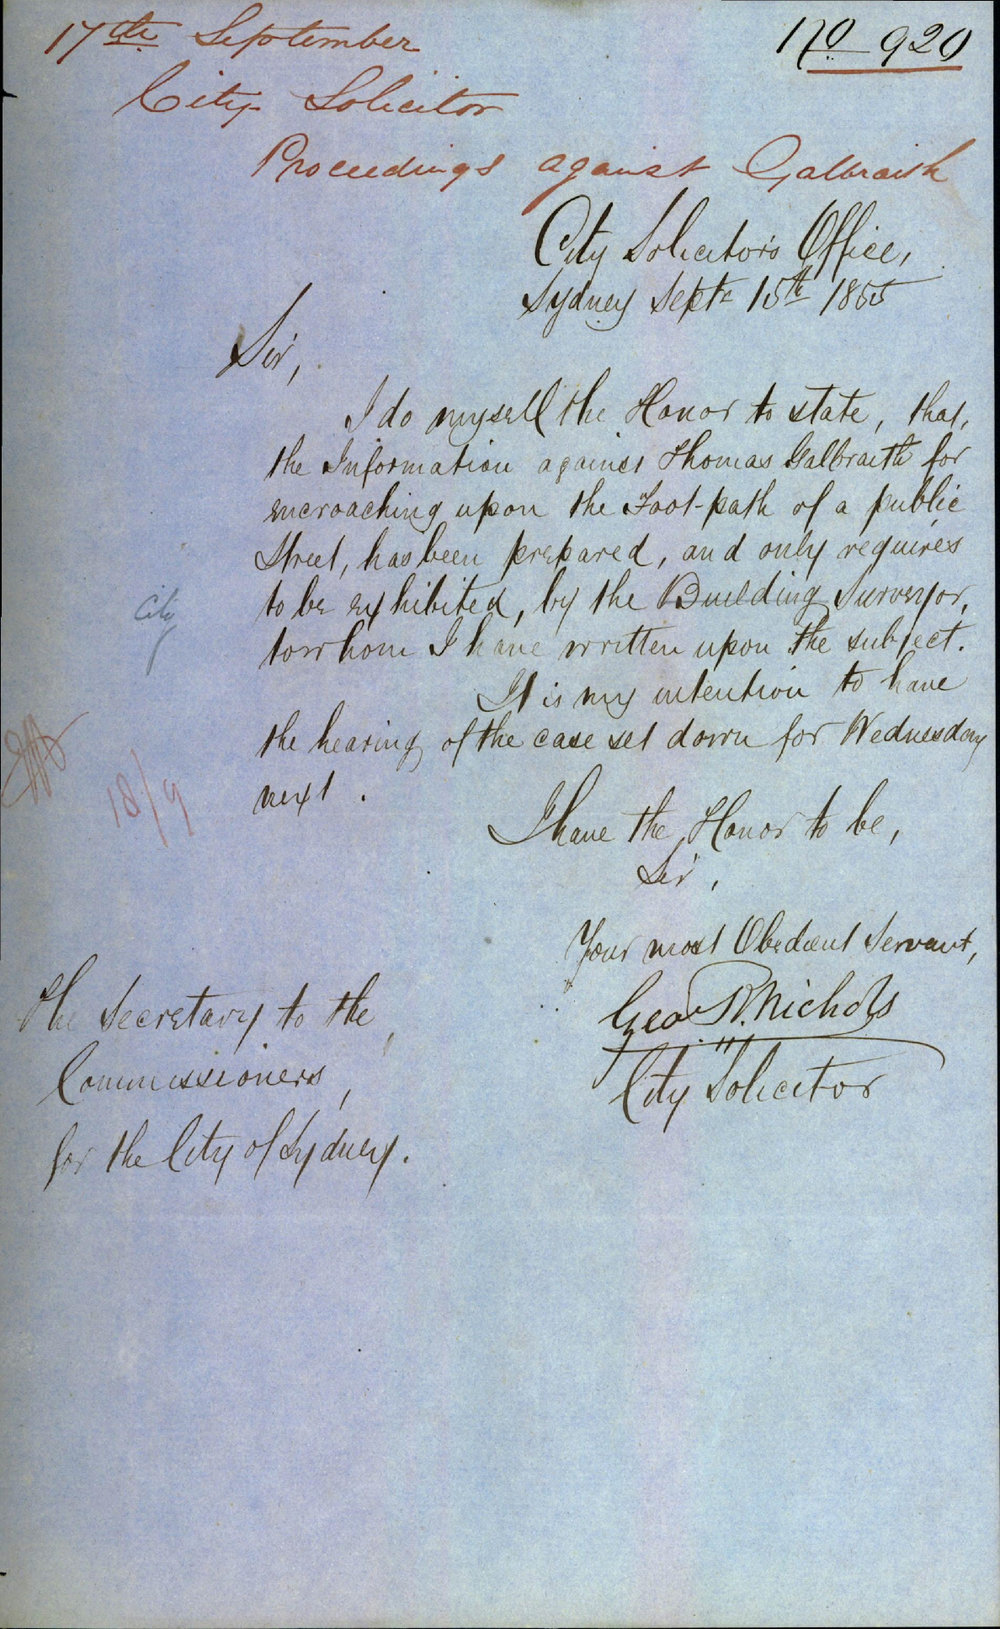 17th September
No 920
City Solicitor
Proceedings against Galbraith
City Solicitor's Office,
Sydney Septr 15th 1855
Sir,
I do myself the Honor to state, that,
the Information against Thomas Galbraith for
encroaching upon the Foot-path of a public
Street, has been prepared, and only requires
to be exhibited, by the Building Surveyor,
to whom I have written upon the subject.
City
It is my intention to have
the hearing of the case set down for Wednesday
next.
18/9
I have the Honor to be,
Sir,
Your most Obedient Servant,
Geo R. Nichols
City Solicitor
The Secretary to the
Commissioners,
for the City of Sydney.